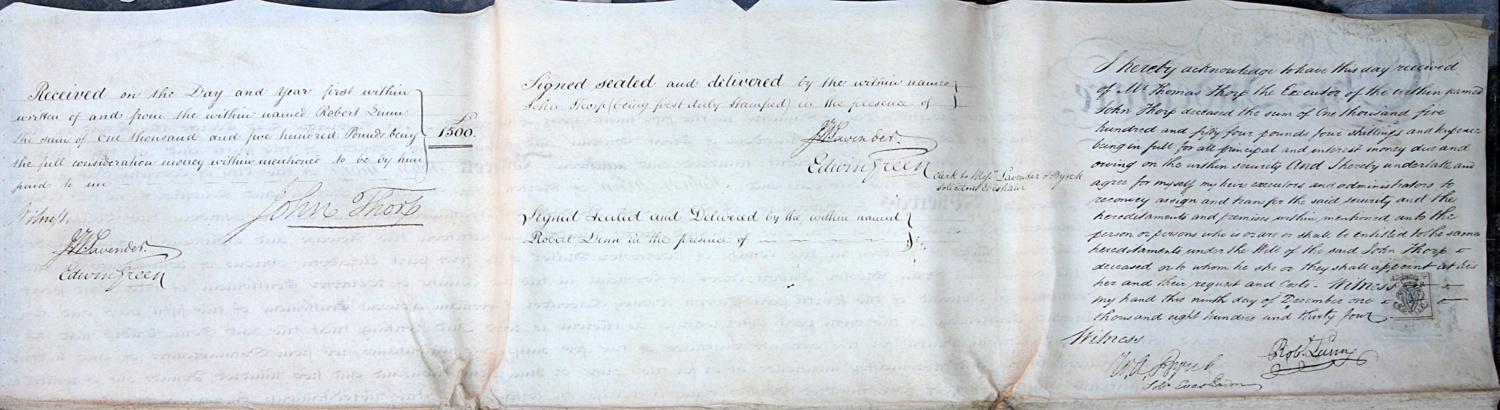 Received on the Day and Year first within
written of and from the within named Robert Lunn
the sum of One thousand and five hundred Pounds being
the full consideration money within mentioned to be by him
paid to me
£
1500.
Witness
John Thorp
Lavender
Edwin Green
Signed sealed and delivered by the within named
John Thorp (being first duly stamped) in the presence of
Lavender
Edwin Green
Clerk to Messrs Lavender & Byrch
solicitors Evesham
Signed Sealed and Delivered by the within named
Robert Lunn in the presence of
I hereby acknowledge to have this day received
of Mr Thomas Thorp the Executor of the within named
John Thorp deceased the sum of One thousand five
hundred and fifty four pounds four shillings and three pence
being in full for all principal and interest money due and
owing on the within security And I hereby undertake and
agree for myself my heirs executors and administrators to
reconvey assign and transfer the said security and the
hereditaments and premises within mentioned unto the
person or persons who is or are or shall be entitled to the same
hereditaments under the Will of the said John Thorp
deceased or to whom he she or they shall appoint at his
her and their request and Costs - Witness
my hand this ninth day of December one
thousand eight hundred and thirty four
Witness
Robt Lunn
W. A. Byrch
Solr Evesham